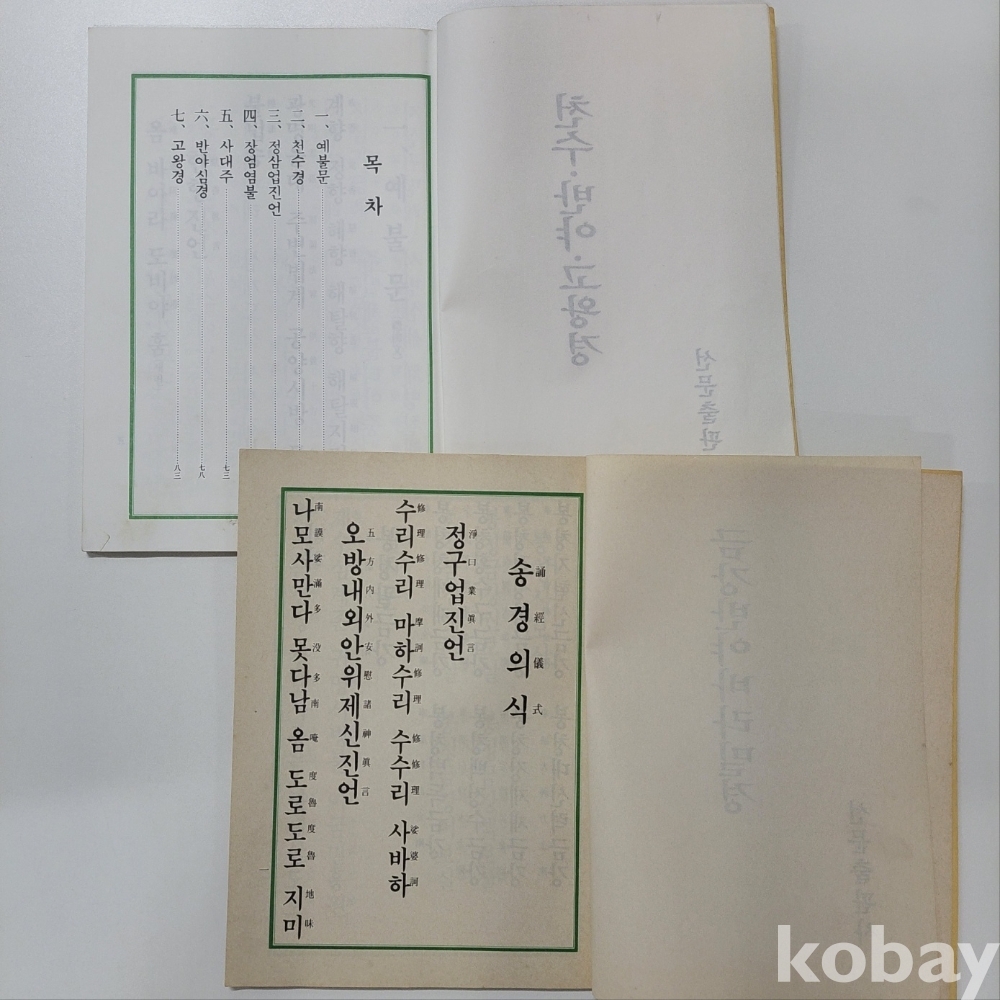 목차
一、예불문
二、천수경
三、정삼업진언
四、장엄염불
五、사대주 七三
六、반야심경 七八
七、고왕경 八三
천수·반야·고왕경
선문출판
송경의식
誦經儀式
정구업진언
淨口業眞言
수리수리 마하수리 수수리 사바하
修理修理 摩訶修理 修修理 娑婆訶
오방내외안위제신진언
五方內外安慰諸神眞言
나모사만다 못다남 옴 도로도로 지미
南謨娑滿多 没多南 唵 度魯度魯 地味
一
금강반야바라밀경
선문출판사
kobay